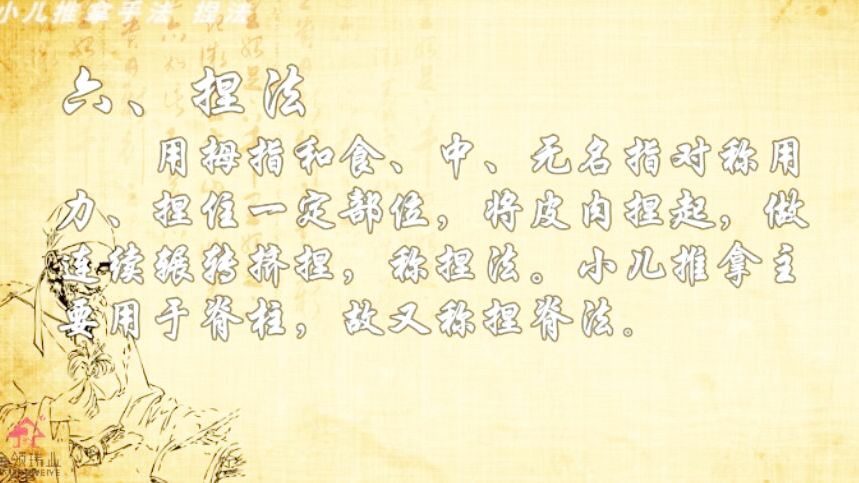 小儿推拿手法 捏法
六、捏法
用拇指和食、中、无名指对称用
力、捏住一定部位，将皮肉捏起，做
连续辗转挤捏，称捏法。小儿推拿主
要用于脊柱，故又称捏脊法。